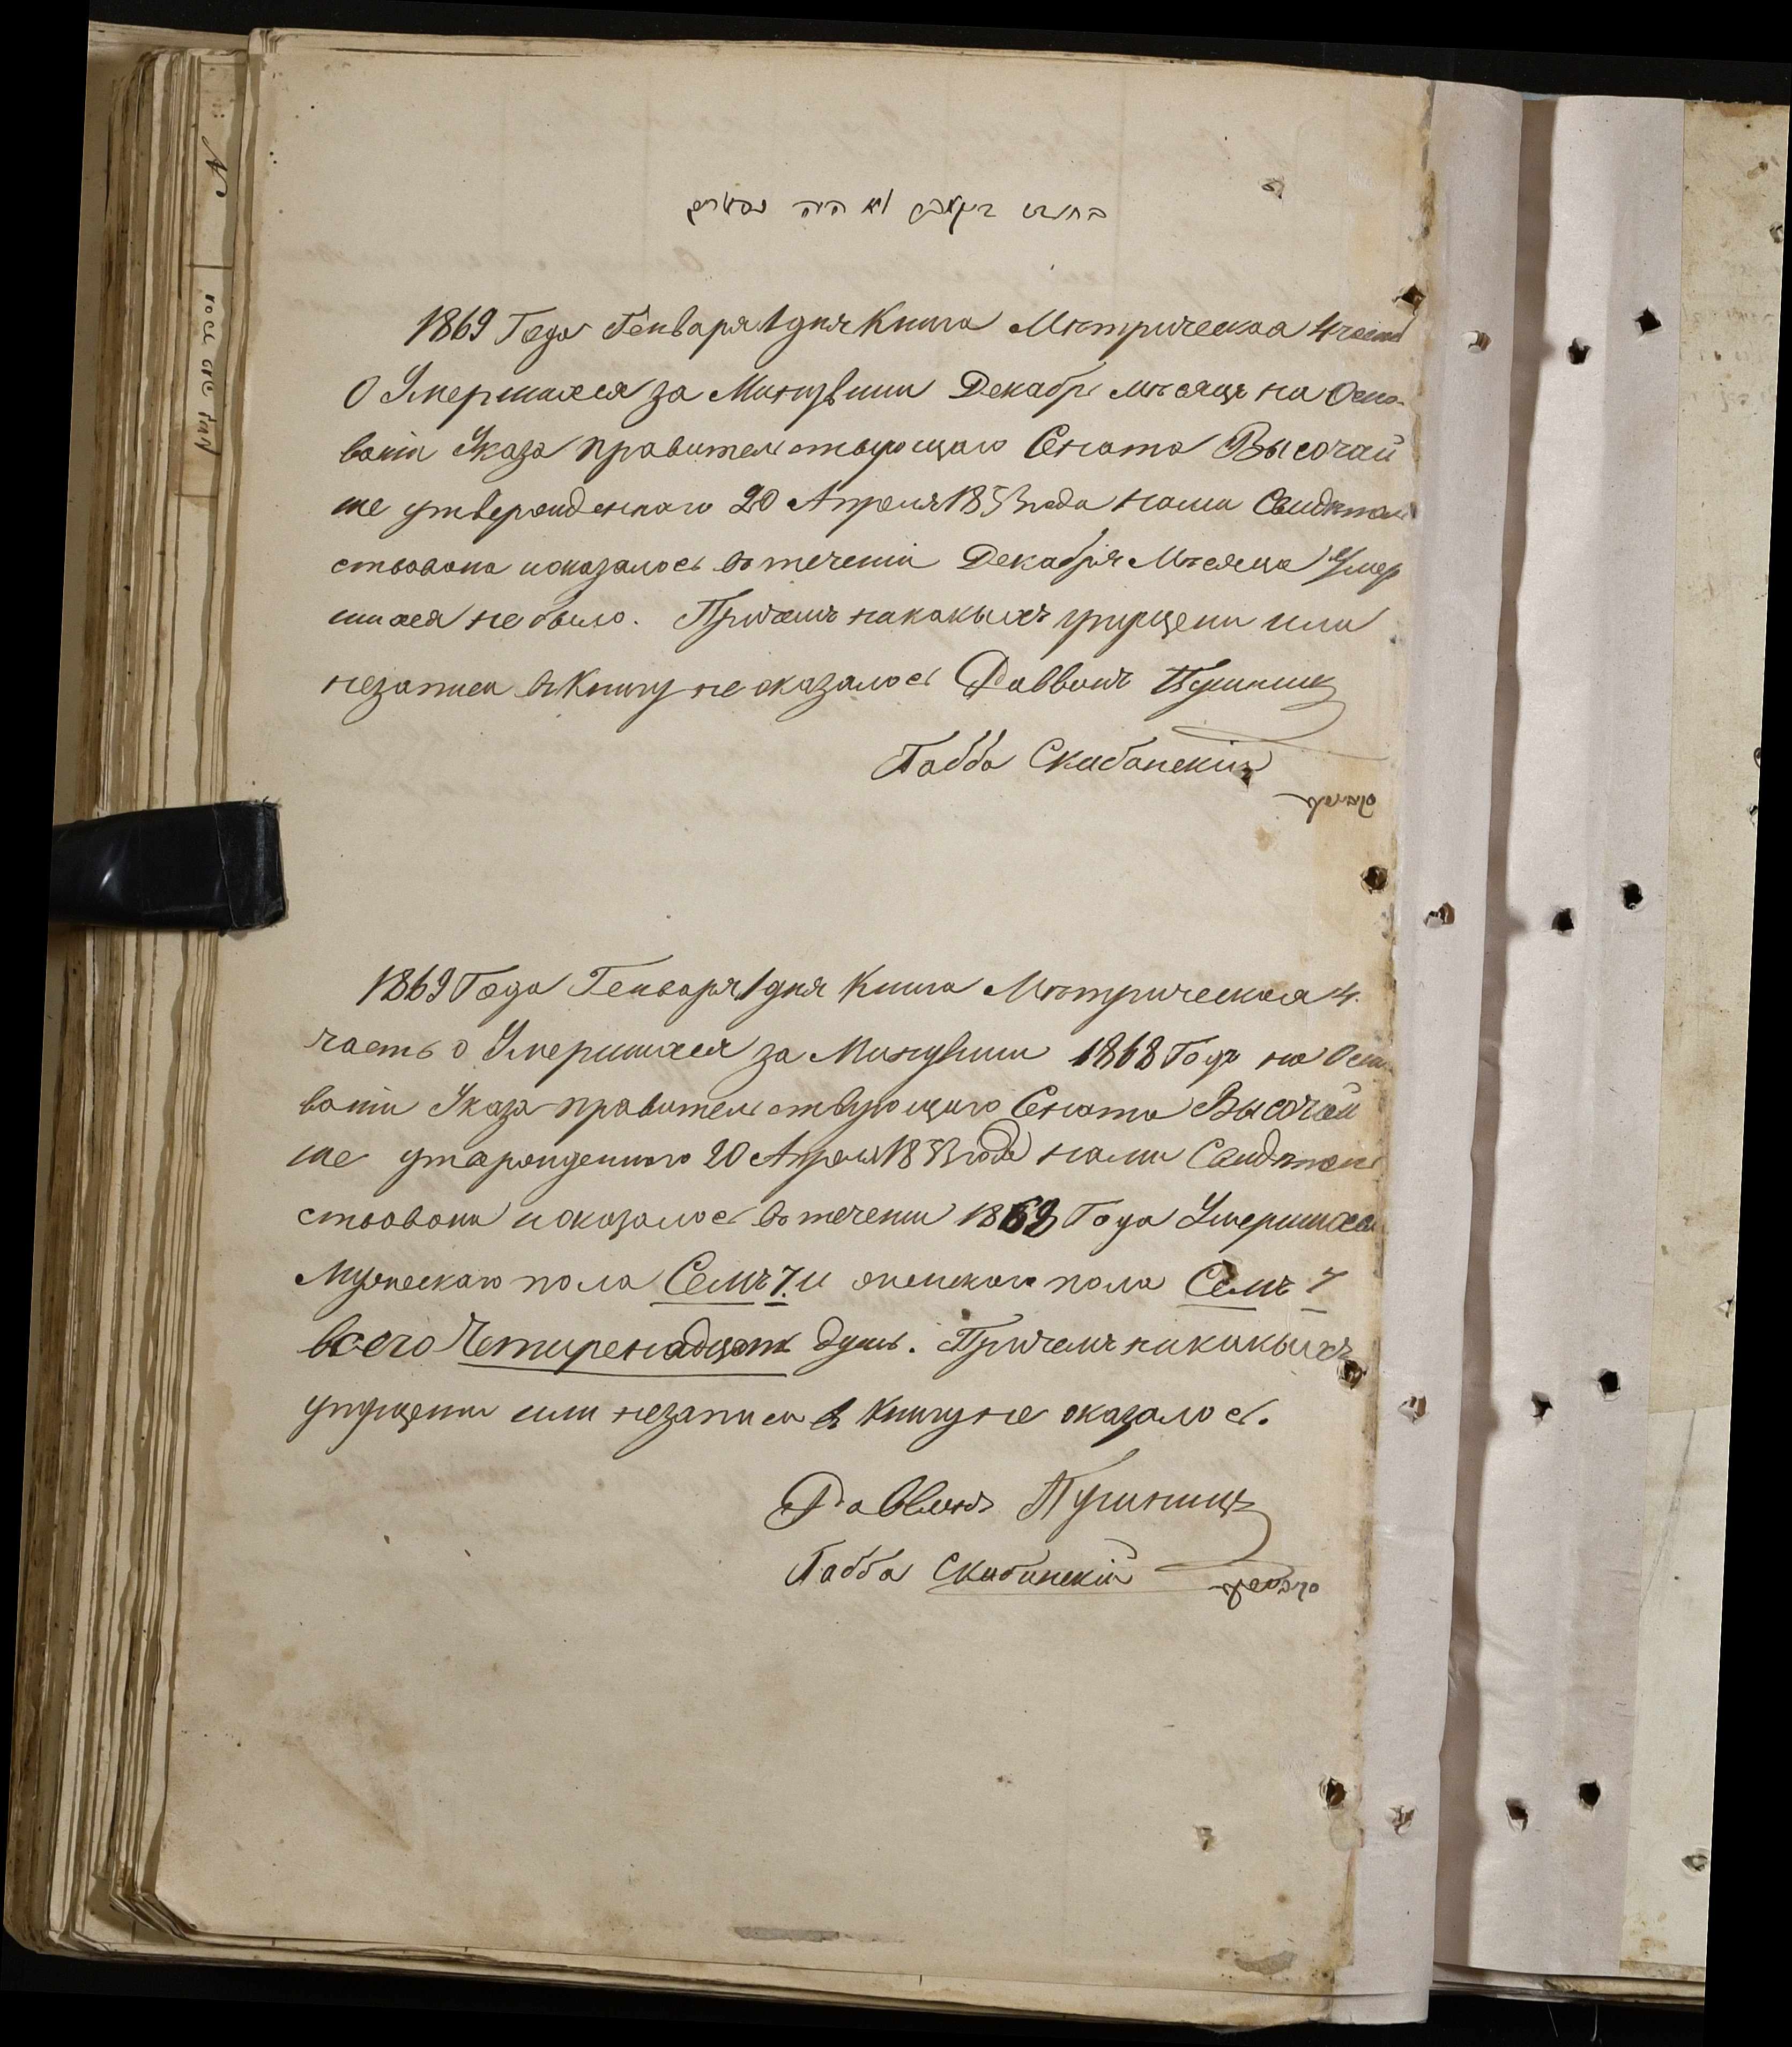 בחודש דיקאבר לא היה נפטרים
1869 Года Генваря 1 дня Книга Метрическая 4 часть
О Умершихся за Минувши Декабрь мѣсяцъ на Осно-
вани Указа правительствующаго Сената Высочай
ше утвержденнаго 20 Апреля 1853 года нами Свидѣтель
ствована иоказалось во течени Декабря Мѣсяца Умер
шихся не было. Причемъ никакыхъ упущени или
незаписи в Книгу не оказалось Раввинъ
Габбо Скибинскій
1869 Года Генваря 1 дня Книга Метрическая 4.
часть о Умершихся за Минувши 1868 Годъ на Осно
вани Указа правительствующаго Сената Высочай
ше утвержденного 20 Апреля 1853 года нами Свидѣтель
ствована иоказалось во течени 1868 Года Умершихся
Мужескаго пола Семъ 7. и женскаго пола Семъ 7
всего Четиренадцать душъ. Причемъ никакыхъ
упущени или незаписи в Книгу не оказалось.
Раввинъ
Габбо Скибинскій